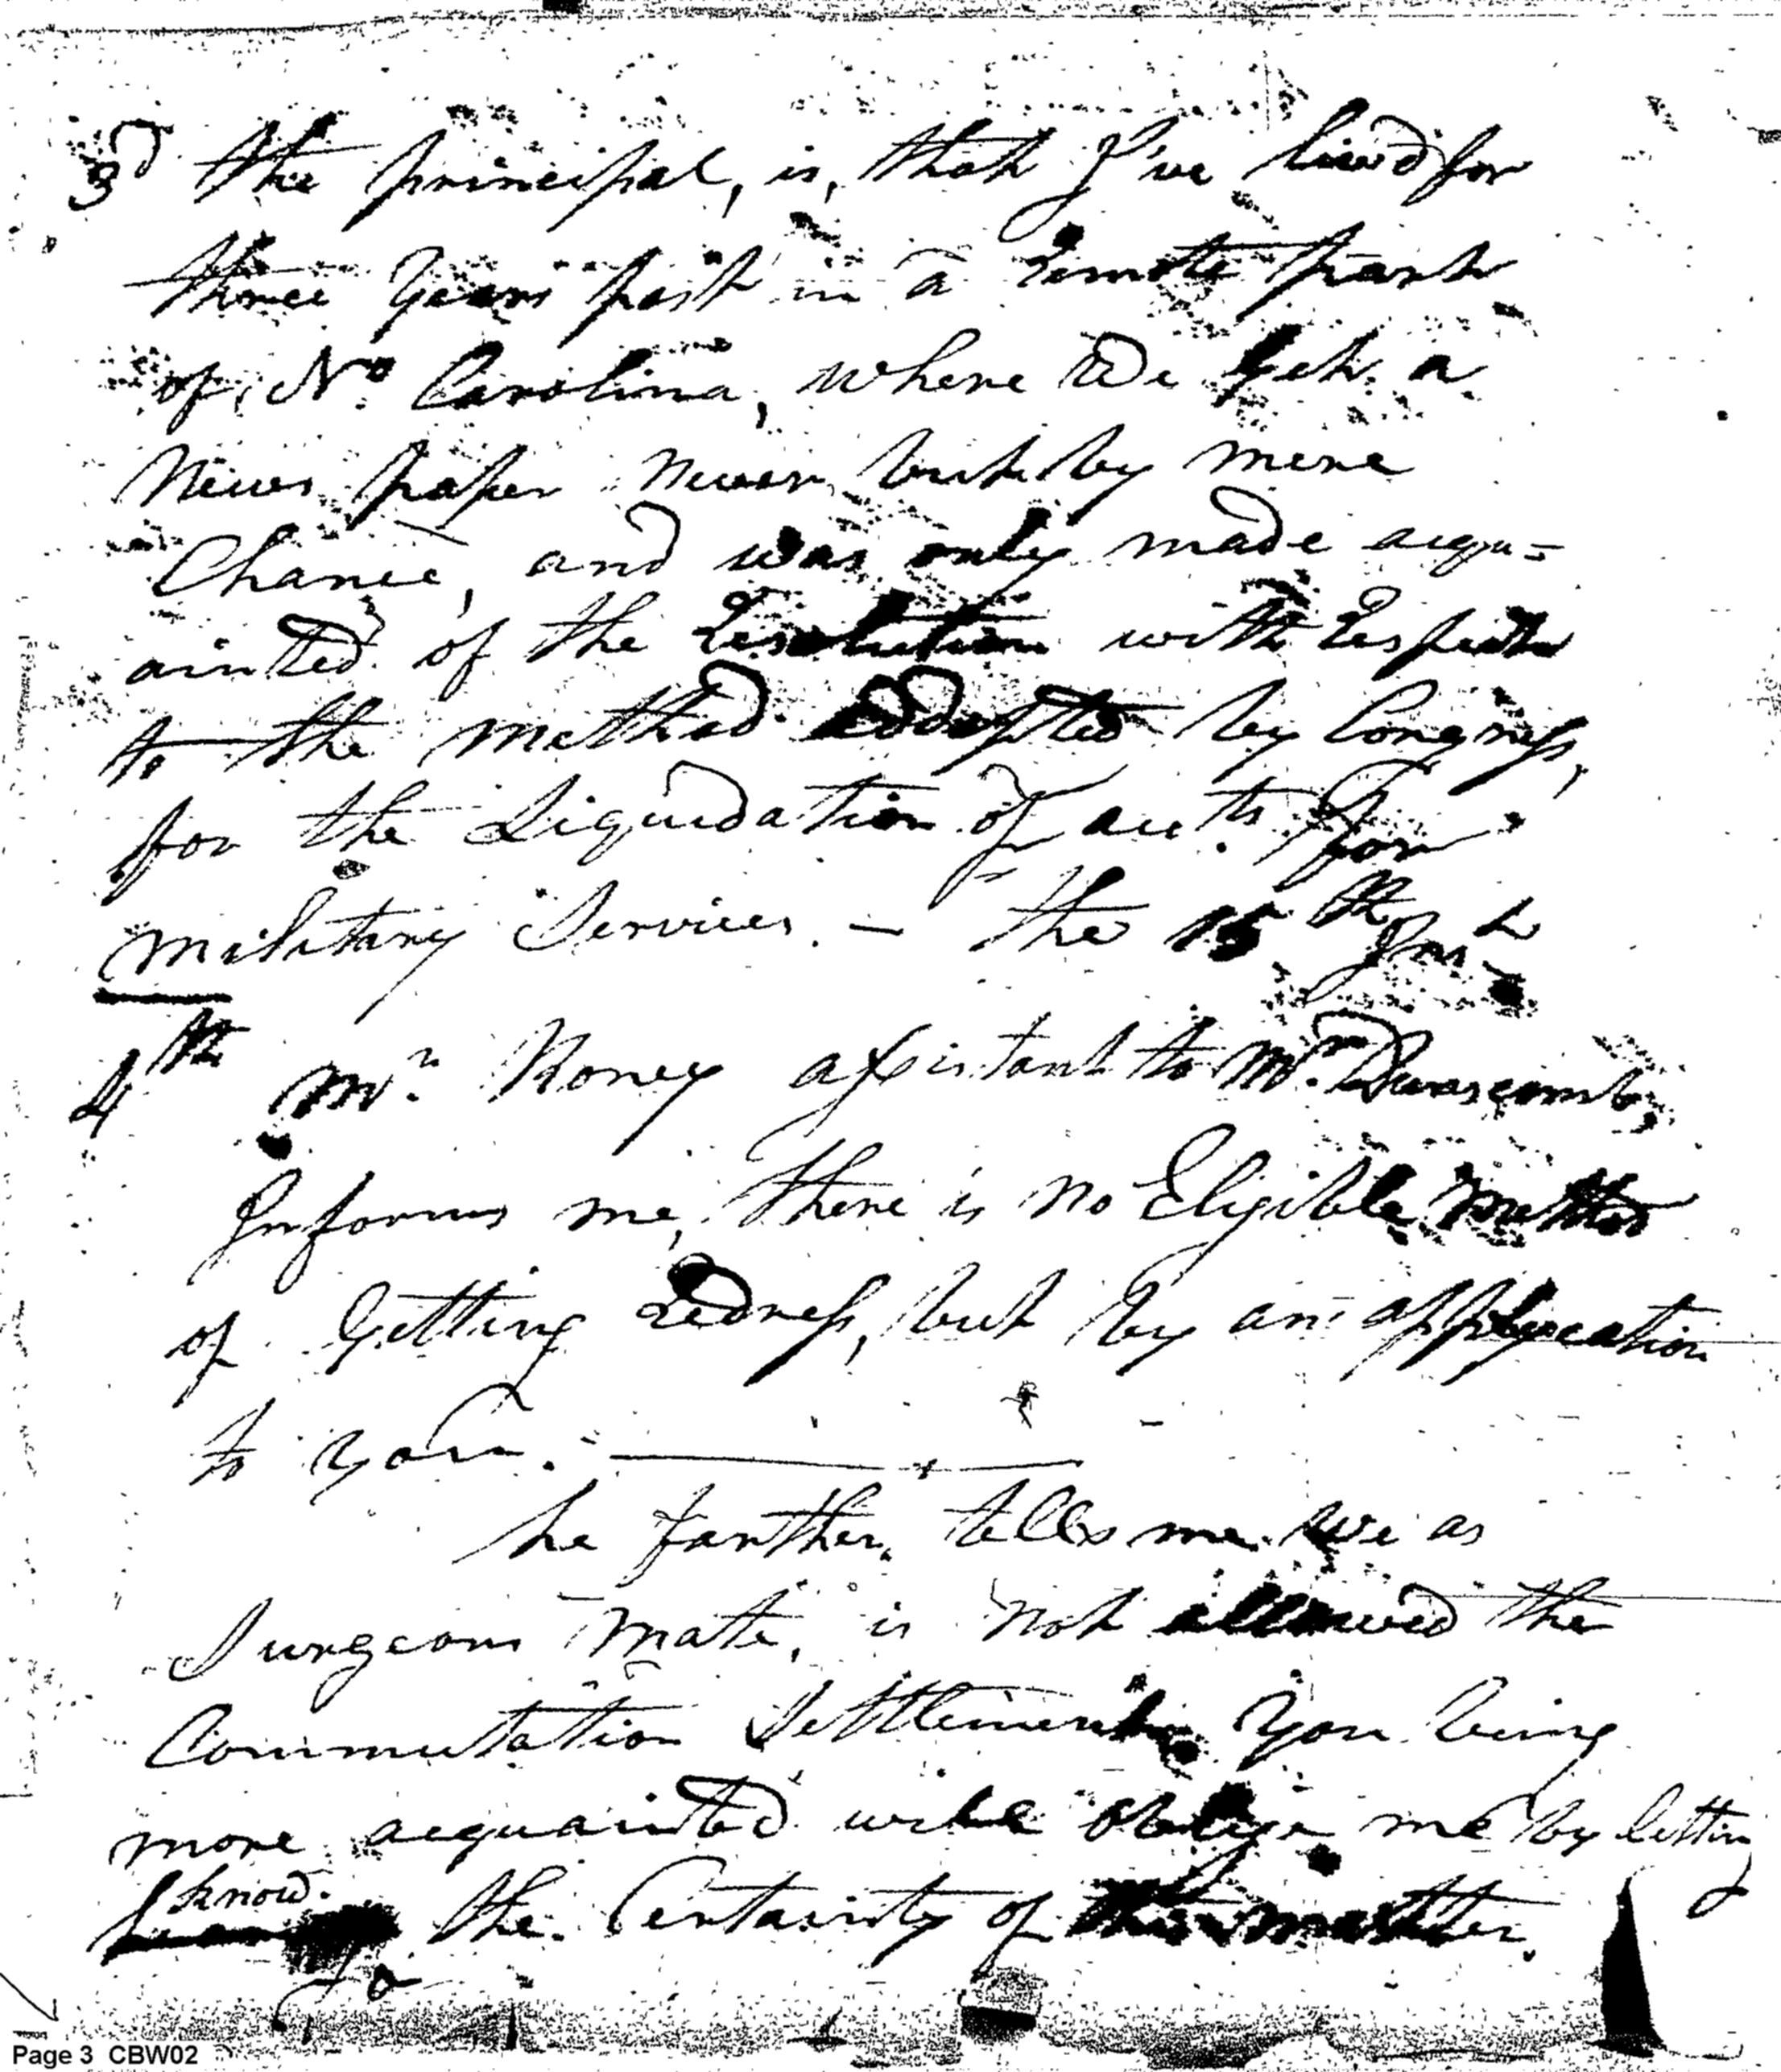 3d the principal, is, that I've lived for
three Years past in a Remote part
of No Carolina, where We Get a
News paper never but by mere
Chance, and was only made acqu=
ainted of the Resolution with Respect
to the method addopted by Congress,
for the Liquidation of accts. for
military Services. — the 15th Inst
4th Mr. Roney assistant to Mr. Dunscomb,
Informs me, there is no Eligible Method
of Getting Redress, but by an applycation
to you. —
he farther tells me we as
Surgeons Mate, is not allowed the
Commutation Settlement, You being
more acquainted will oblige me by letting
know the Certainty of this matter.
To
Page 3 CBW02